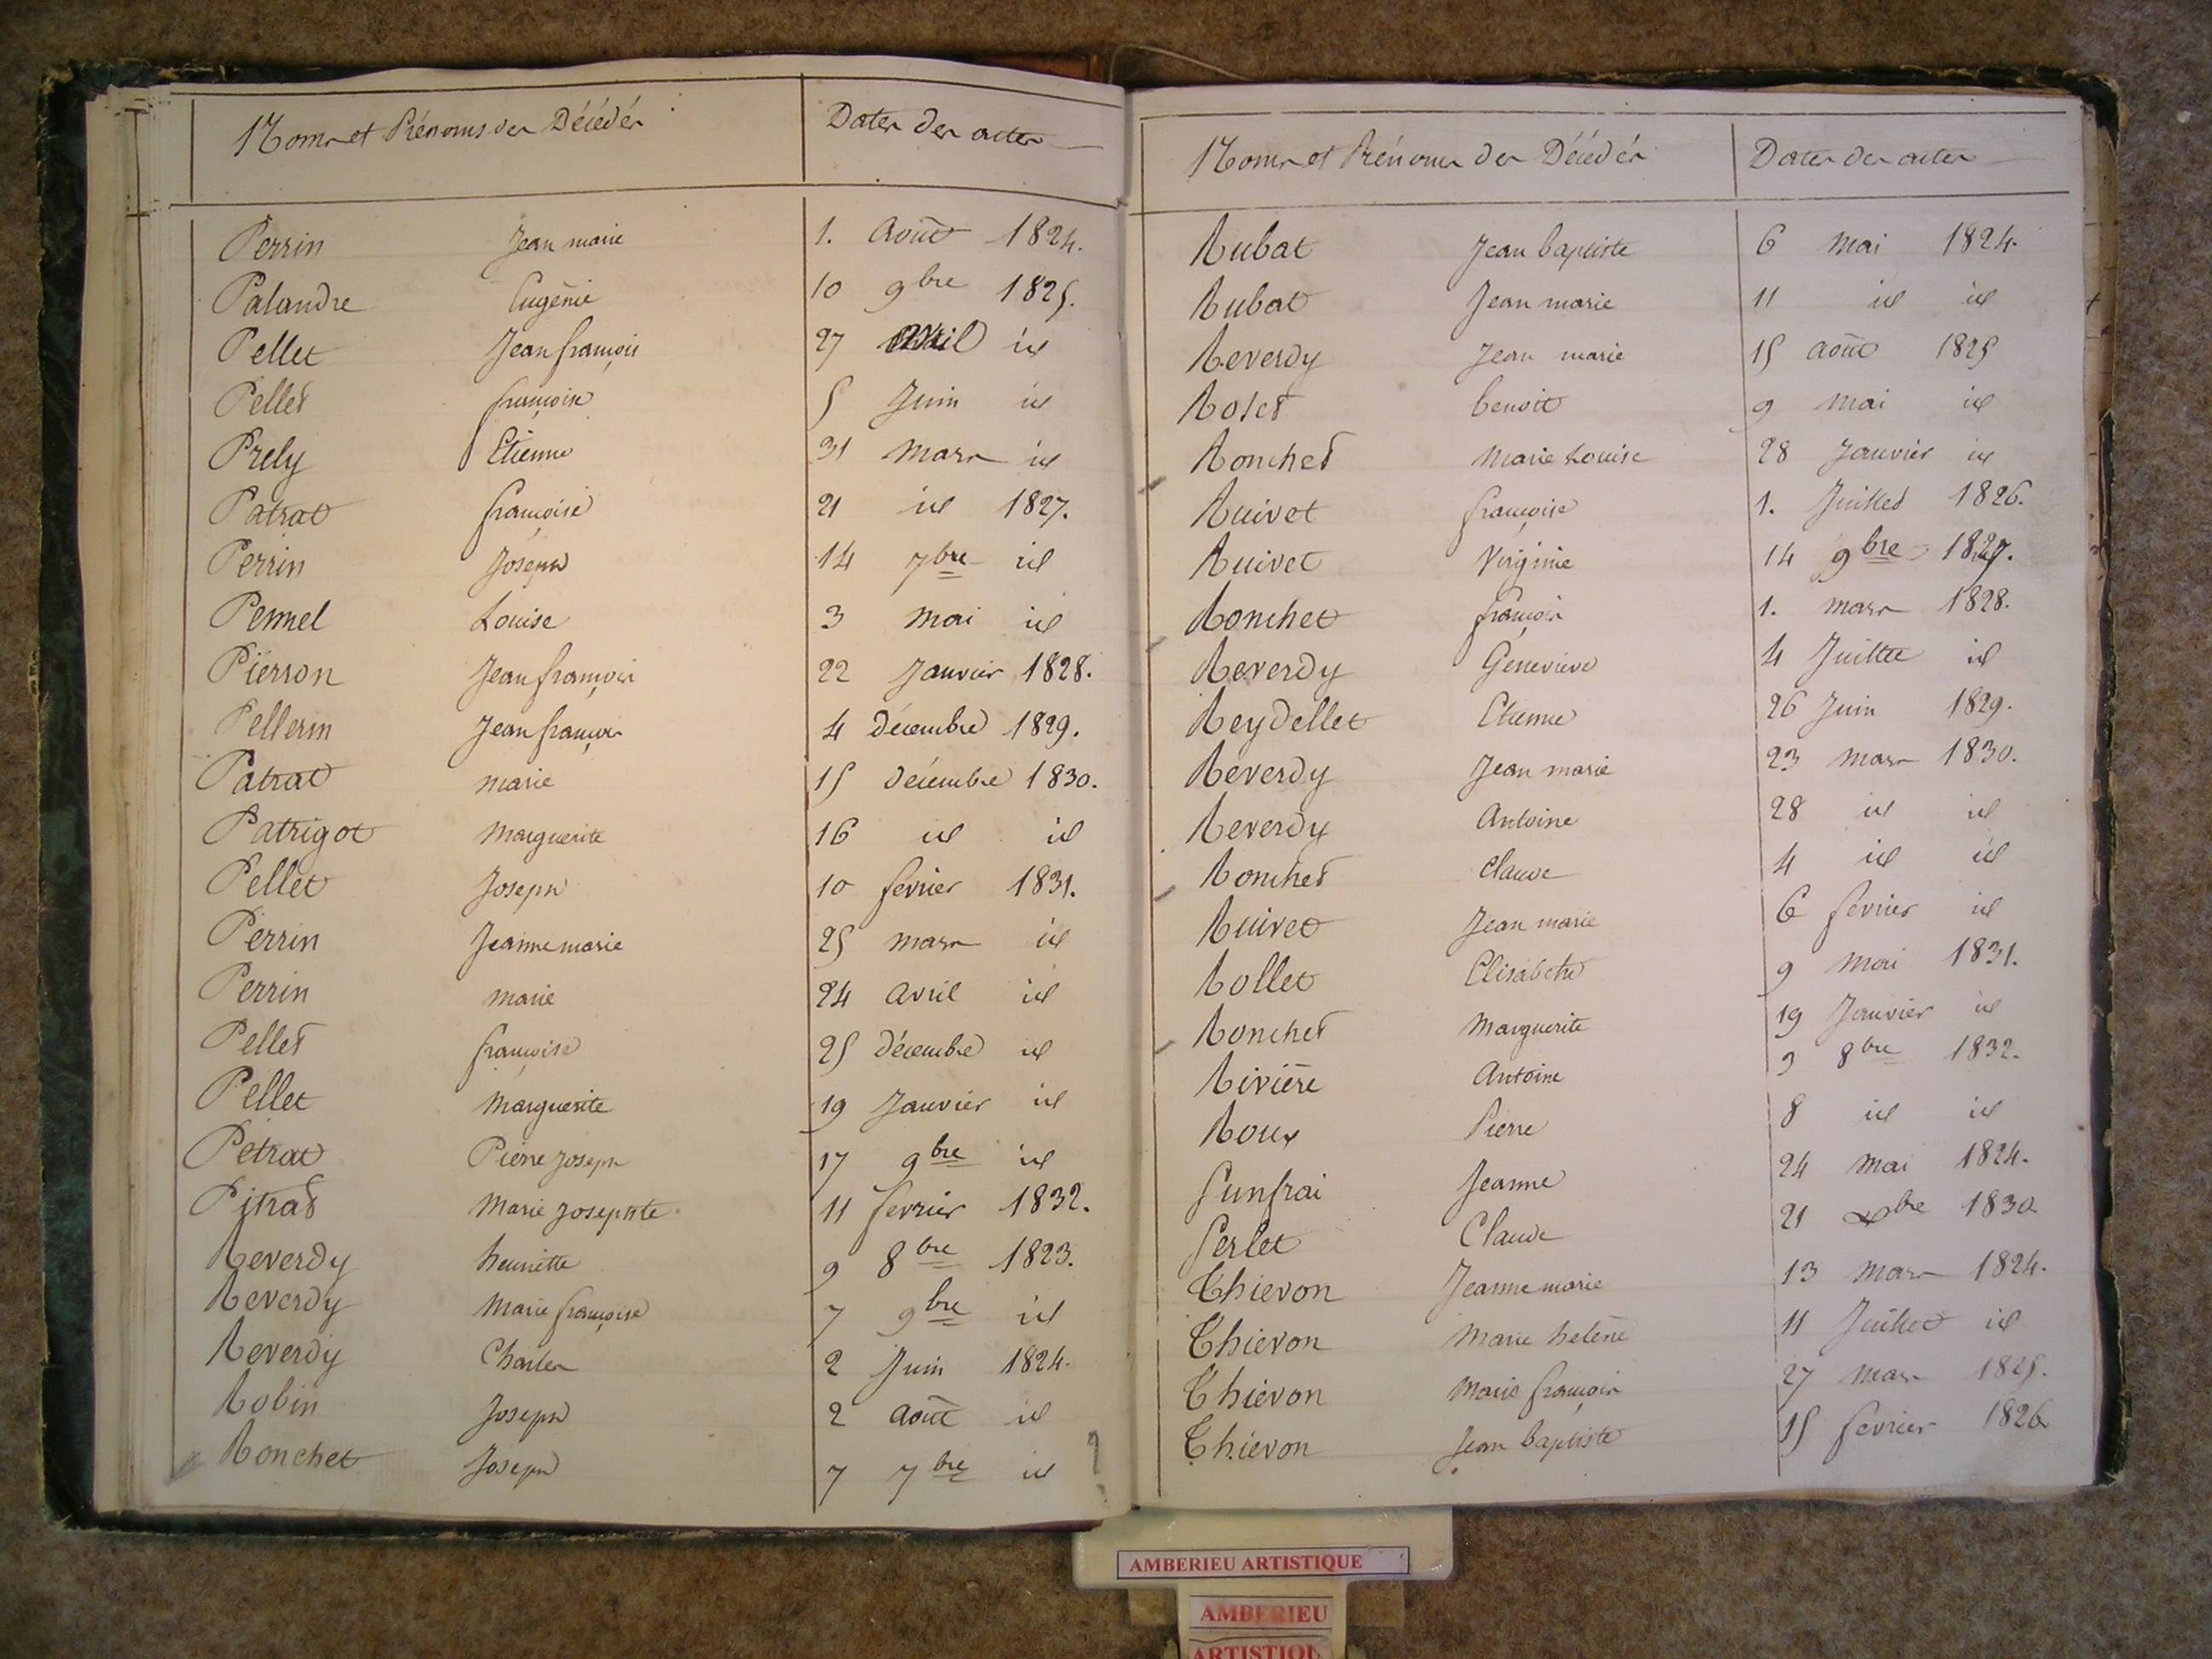 Noms et Prénoms des Décédés Dates des actes
Perrin Jean marie 1. Août 1824.
Palandre Eugénie 10 9bre 1825.
Pellet Jean françois 27 avril id
Pellet françoise 5 Juin id
Prely Etienne 31 mars id
Patrat françoise 21 id 1827.
Perrin Joseph 14 7bre id
Pennel Louise 3 mai id
Pierron Jean françois 22 Janvier 1828.
Pellerin Jean françois 4 Décembre 1829.
Patrat marie 15 Décembre 1830.
Patrigot Marguerite 16 id id
Pellet Joseph 10 fevrier 1831.
Perrin Jeanne marie 25 mars id
Perrin marie 24 avril id
Pellet françoise 25 Décembre id
Pellet Marguerite 19 Janvier id
Petrat Pierre Joseph 17 9bre id
Pitrat Marie Josephte 11 fevrier 1832.
Reverdy henriette 9 8bre 1823.
Reverdy Marie françoise 7 9bre id
Reverdy Charles 2 Juin 1824.
Robin Joseph 2 Août id
Ronchet Joseph 7 7bre id
Noms et Prénoms des Décédés Dates des actes
Rubat Jean baptiste 6 mai 1824.
Rubat Jean marie 11 id id
Reverdy Jean marie 15 août 1825
Roset benoit 9 mai id
Ronchet Marie Louise 28 Janvier id
Ruivet françoise 1. Juillet 1826.
Ruivet Virginie 14 9bre 1827.
Ronchet françois 1. mars 1828.
Reverdy Genevieve 4 Juillet id
Reydellet Etienne 26 Juin 1829.
Reverdy Jean marie 23 mars 1830.
Reverdy Antoine 28 id id
Ronchet Claude 4 id id
Ruivet Jean marie 6 fevrier id
Rollet Elisabeth 9 Mai 1831.
Ronchet Marguerite 19 Janvier id
Rivière Antoine 8bre 1832.
Roux Pierre 8 id id
Sunfrai Jeanne 24 Mai 1824.
Serlet Claude 21 xbre 1830
Thievon Jeanne marie 13 Mars 1824.
Thievon Marie helène 11 Juillet id
Thievon Marie françois 27 Mars 1825.
Thievon Jean baptiste 15 fevrier 1826
AMBERIEU ARTISTIQUE
AMBERIEU
ARTISTIQU